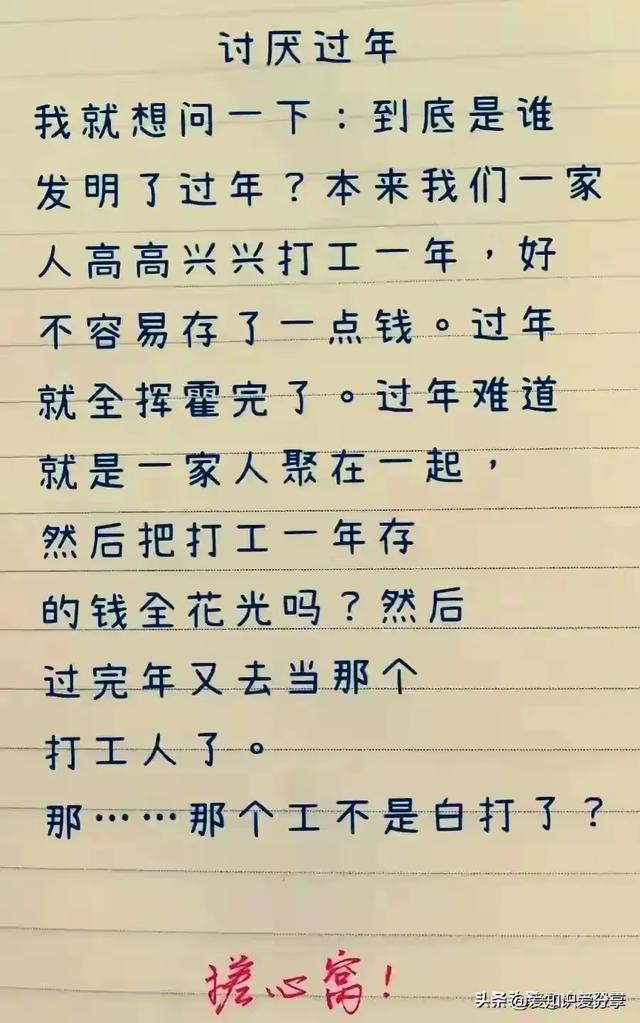 讨厌过年
我就想问一下：到底是谁
发明了过年？本来我们一家
人高高兴兴打工一年，好
不容易存了一点钱。过年
就全挥霍完了。过年难道
就是一家人聚在一起，
然后把打工一年存
的钱全花光吗？然后
过完年又去当那个
打工人了。
那……那个工不是白打了？
搓心窝！
头条@爱知识爱分享